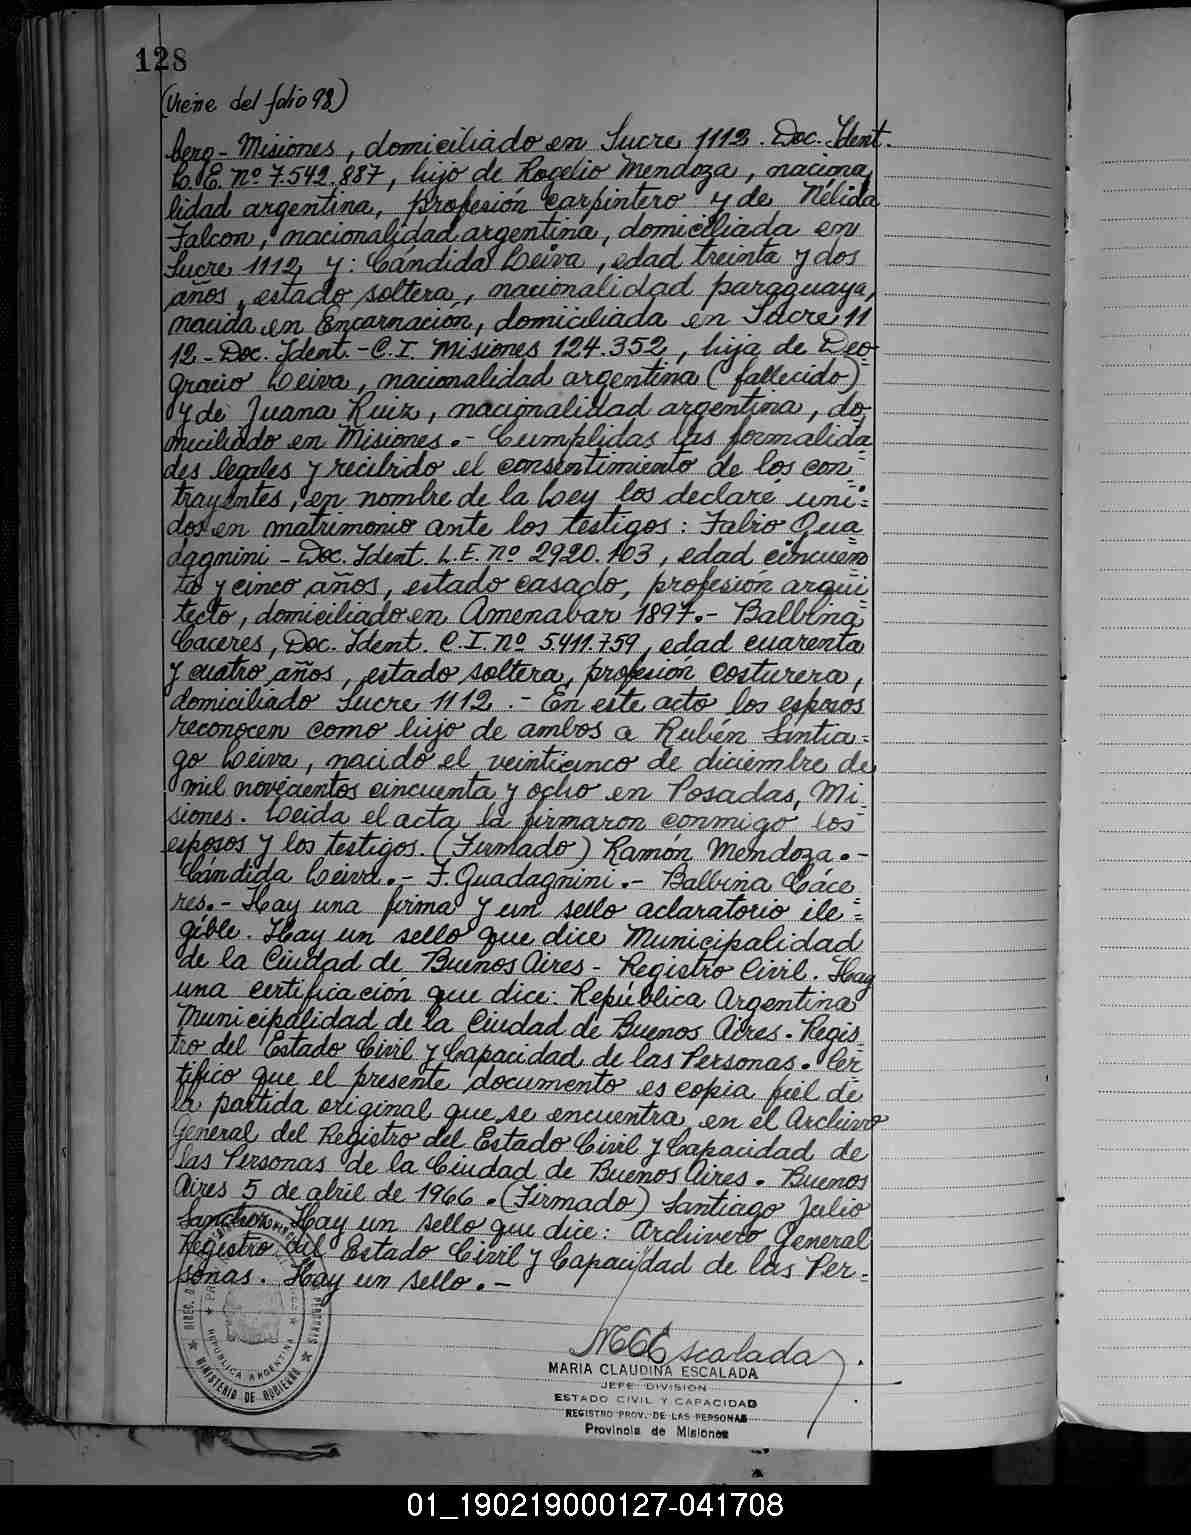 128
(Viene del folio 98)
berg - Misiones, domiciliado en Sucre 1112. Doc. Ident.
L.E. Nº 7.542.887, hijo de Rogelio Mendoza, naciona
lidad argentina, profesión carpintero y de Nélida
Falcon, nacionalidad argentina, domiciliada en
Sucre 1112 y: Cándida Leiva, edad treinta y dos
años, estado soltera, nacionalidad paraguaya,
nacida en Encarnación, domiciliada en Sucre 11
12 - Doc. Ident. - C.I. Misiones 124.352, hija de Deo-
gracio Leiva, nacionalidad argentina (fallecido)
y de Juana Ruiz, nacionalidad argentina, do
miciliado en Misiones. - Cumplidas las formalida
des legales y recibido el consentimiento de los con-
trayentes, en nombre de la Ley los declaré uni=
dos en matrimonio ante los testigos: Fabio Gua
dagnini - Doc. Ident. L.E. Nº 2920.103, edad cincuen
ta y cinco años, estado casado, profesión arqui
tecto, domiciliado en Amenabar 1897. - Balbina
Caceres, Doc. Ident. C.I. Nº 5.411.759, edad cuarenta
y cuatro años, estado soltera, profesión costurera,
domiciliado Sucre 1112. - En este acto los esposos
reconocen como hijo de ambos a Rubén Santia-
go Leiva, nacido el veinticinco de diciembre de
mil novecientos cincuenta y ocho en Posadas, Mi-
siones. Leida el acta la firmaron conmigo los
esposos y los testigos. (Firmado) Ramón Mendoza. -
Cándida Leiva. - F. Guadagnini. - Balbina Cáce
res. - Hay una firma y un sello aclaratorio ile=
gible. Hay un sello que dice Municipalidad
de la Ciudad de Buenos Aires - Registro Civil. Hay
una certificación que dice: República Argentina
Municipalidad de la Ciudad de Buenos Aires. Regis-
tro del Estado Civil y Capacidad de las Personas. Cer
tifico que el presente documento es copia fiel de
la partida original que se encuentra en el Archivo
General del Registro del Estado Civil y Capacidad de
las Personas de la Ciudad de Buenos Aires. Buenos
Aires 5 de abril de 1966. (Firmado) Santiago Julio
Sanchez. Hay un sello que dice: Archivero General
Registro del Estado Civil y Capacidad de las Per=
sonas. Hay un sello. -
REPUBLICA ARGENTINA
MINISTERIO DE GOBIERNO
MCEscalada
MARIA CLAUDINA ESCALADA
JEFE DIVISION
ESTADO CIVIL Y CAPACIDAD
REGISTRO PROV. DE LAS PERSONAS
Provincia de Misiones
01_190219000127-041708